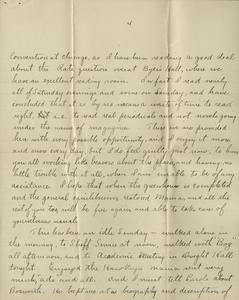 4
Convention at Chicago, as I have been reading a good deal
about the Rate question we at Byers Hall, where we
have an excellent reading room. In fact I read nearly
all of Saturday evenings and some on Sunday, and have
concluded that it is by no means a waste of time to read
right, i.e. to read real periodicals and not novels going
under the name of magazine. There we are provided
here with every possible opportunity, and I enjoy it more
and more every day, but I do feel guilty, just now, to have
you all working like beavers about the place, and having no
little trouble with it all, when I am unable to be of any
assistance. I hope that when the greenhouse is completed
and the general equilibrium restored Mama, and all the
rest of you too, will be free again and able to take care of
yourselves as usual.
This has been an idle Sunday – walked alone in
the morning, to Sheff. Senior at noon, walked with "Bog"
all afternoon, and to Academic Meeting in Dwight Hall
tonight. Enjoyed the Mama sent very
much, ads and all. And I must tell Carola about
Bosworth. He kept me at a biography and description of